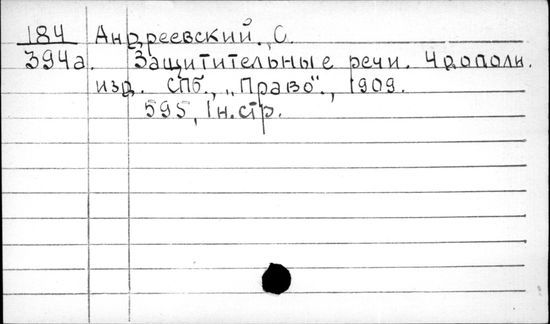 184 Андреевский, С.
394а. Защитительные речи. 4 дополн.
изд. СПб., „Право", 1909.
595, 1н.стр.